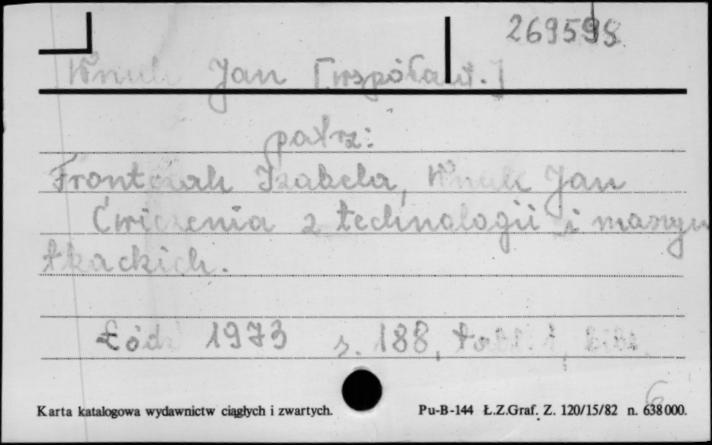 269598
Wnuk Jan [współaut.]
patrz:
Frontczak Izabela, Wnuk Jan
Ćwiczenia z technologii i maszyn
tkackich.
Łódź 1973 s. 188, tabl. 1, bibl.
6
Karta katalogowa wydawnictw ciągłych i zwartych. Pu-B-144 Ł.Z.Graf. Z. 120/15/82 n. 638000.